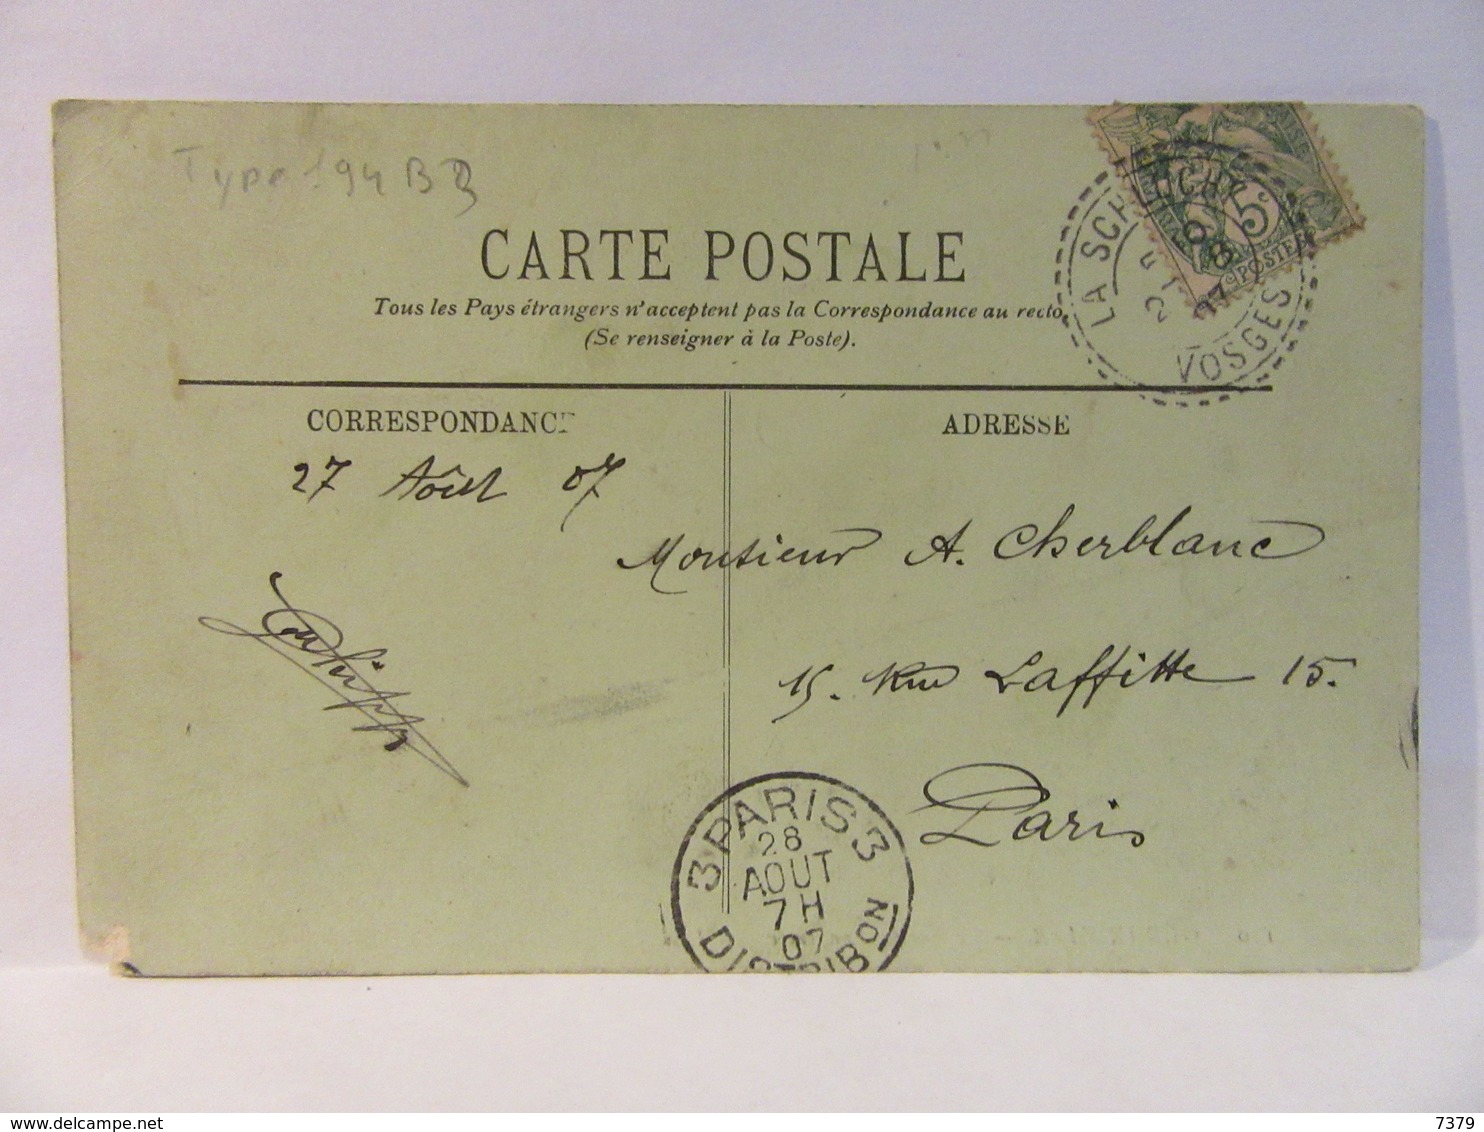 Type 194 B
CARTE POSTALE
Tous les Pays étrangers n'acceptent pas la Correspondance au recto
(Se renseigner à la Poste).
LA SCHLUCHT
VOSGES
5c
POSTES
CORRESPONDANCE
ADRESSE
27 Août 07
Monsieur A. Cherblanc
15. Rue Laffitte 15.
Paris
3 PARIS 3
28
AOUT
7 H
07
DISTRIBON
delcampe.net
lesaintmichel
7379